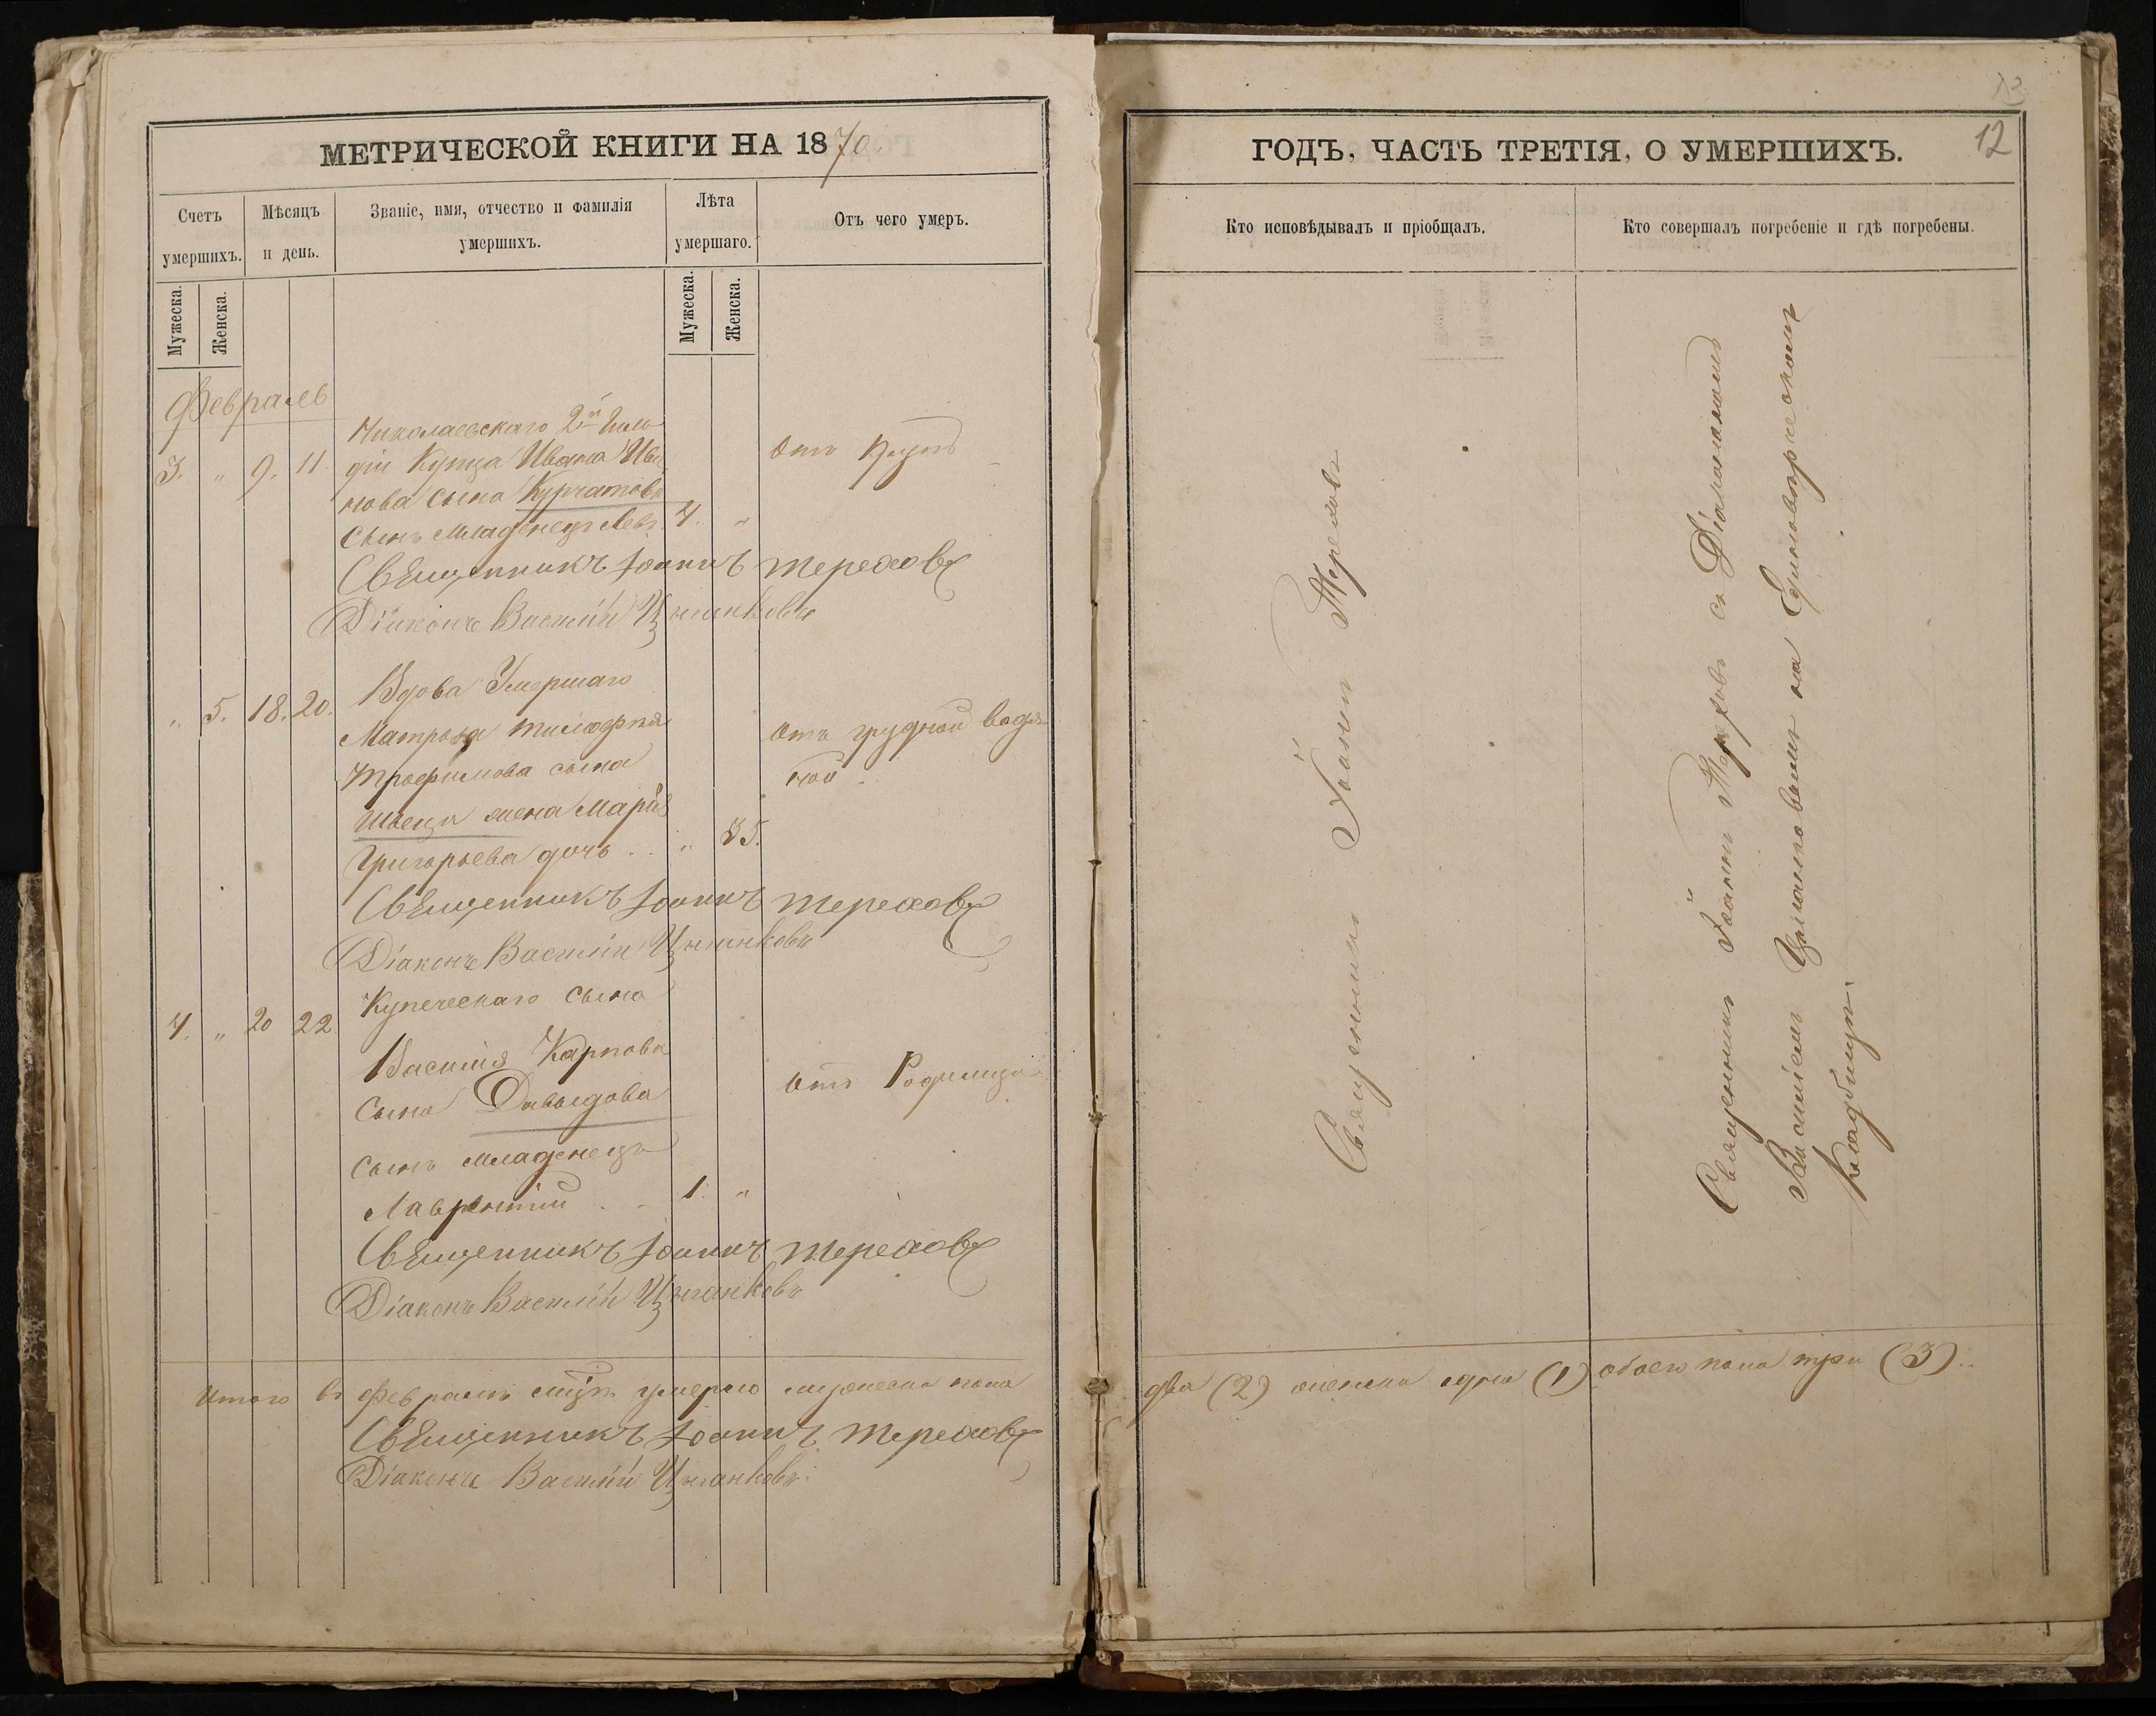 МЕТРИЧЕСКОЙ КНИГИ НА 1870.
Счетъ умершихъ.
Мѣсяцъ и день.
Званіе, имя, отчество и фамилія умершихъ.
Лѣта умершаго.
Отъ чего умеръ.
Мужеска.
Женска.
Мужеска.
Женска.
Февраль
3. " 9. 11.
Николаевскаго 2й Гиль
діи Купца Ивана Ива
нова сына Курчатова
сынъ Младенецъ Левъ. 4. "
Отъ
Священникъ Іоаннъ Тереховъ
Діаконъ Василій Цыганковъ
" 5. 18. 20.
Вдова Умершаго
Матроса Тимофея
Трофимова сына
Швеца жена Марія
Григорьева дочь . . " 35.
Отъ грудной водя
ной
Священникъ Іоаннъ Тереховъ
Діаконъ Василій Цыганковъ
4. " 20 22.
Купеческаго сына
Василія Карпова
сына Давыдова
сынъ Младенецъ
Лаврентій . . 1. "
Отъ Родимца
Священникъ Іоаннъ Тереховъ
Діаконъ Василій Цыганковъ
Итого въ Февралѣ мцѣ умерло мужеска пола
Священникъ Іоаннъ Тереховъ
Діаконъ Василій Цыганковъ
ГОДЪ, ЧАСТЬ ТРЕТІЯ, О УМЕРШИХЪ.
12
Кто исповѣдывалъ и пріобщалъ.
Кто совершалъ погребеніе и гдѣ погребены.
Священникъ Іоаннъ Тереховъ
Священникъ Іоаннъ Тереховъ съ Діакономъ
Василіемъ Цыганковымъ на Единовѣрческомъ
Кладбищѣ.
два (2) женска одна (1) обоего пола три (3)..